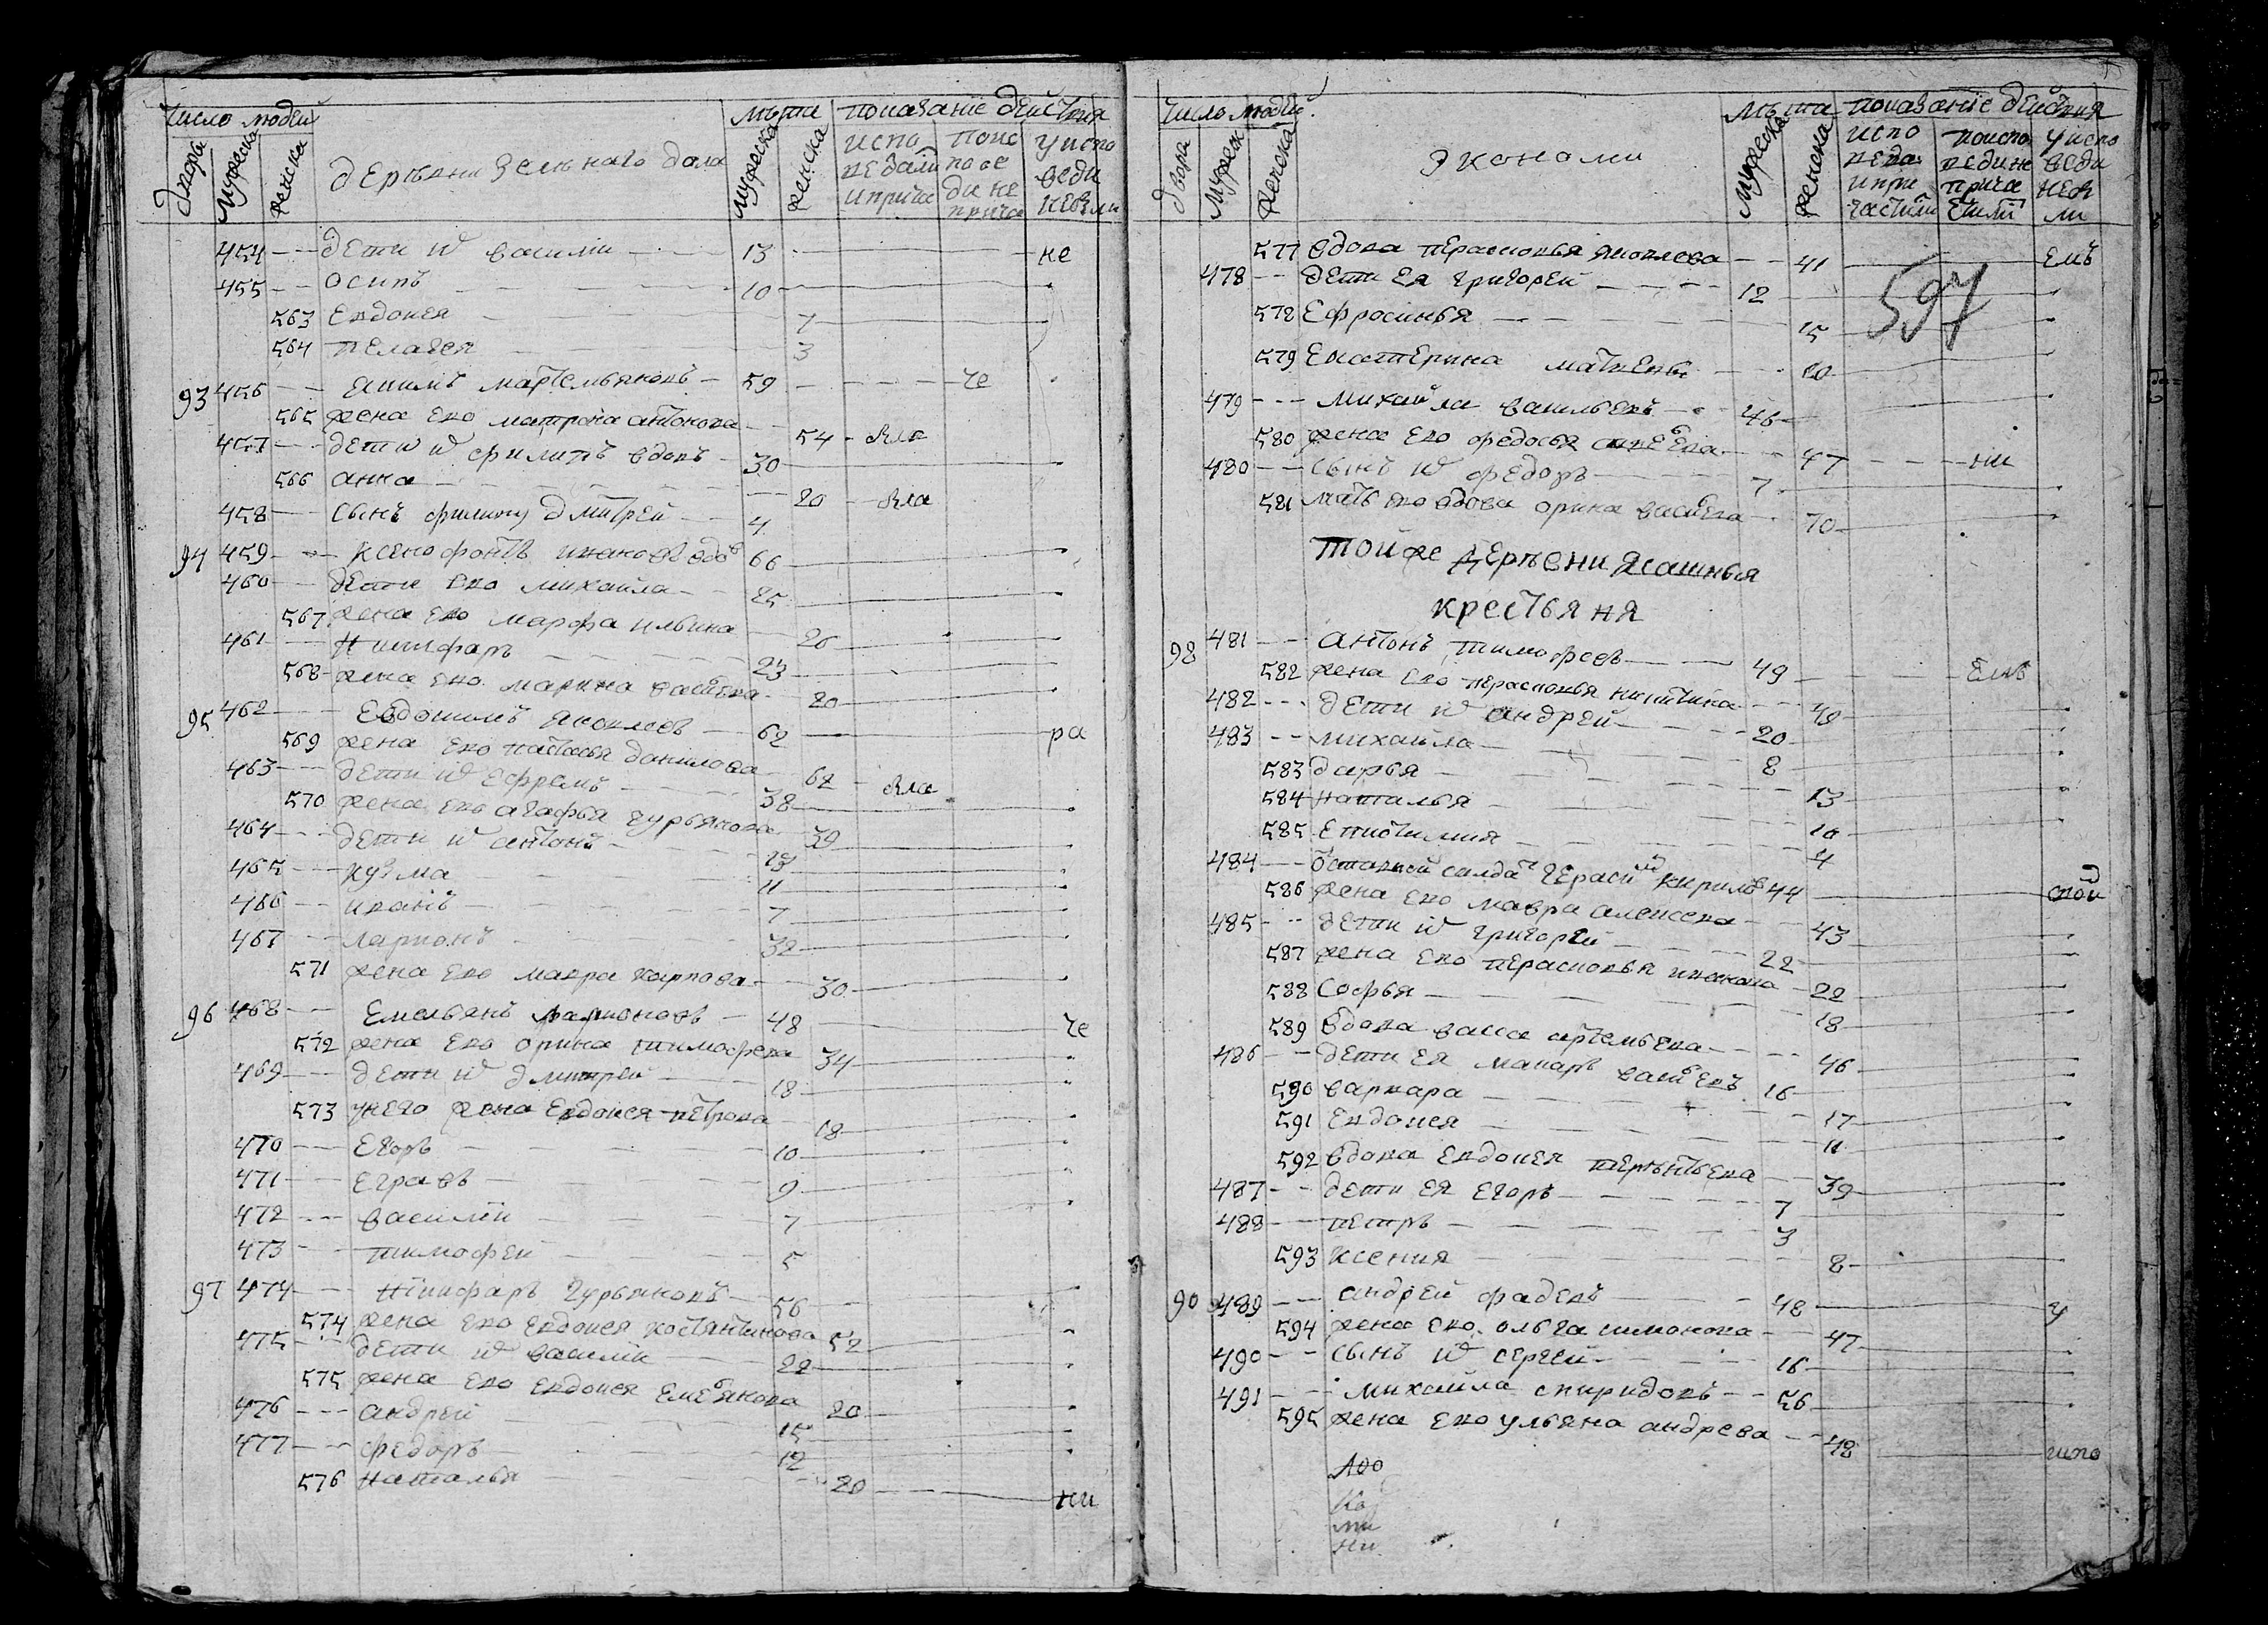 Число людей
двора мужеска женска
деревни Зельнаго дола
лѣта
мужеска женска
показанiе действiя
испо ведали и прича
поис пове ди не прича
у испо веди не были
454 дети и василiи 13 не
455 осипъ 10
563 Евдокея 7
564 пелагея 3
93 456 якимъ мартемьяновъ 59 че
565 жена ево матрона антонова 54 яла
457 дети и филипъ вдовъ 30
566 анна 20 яла
458 сынъ филипу дмитрей 4
94 459 ксенофонтъ ивановъ вдов 66
460 дети ево михайла 25
567 жена ево марфа ильина 26
461 никифаръ 23
568 жена ево марина васильева 20
95 462 Евдокимъ яковлевъ 62 ра
569 жена ево настасья данилова 62 яла
463 дети и ефремъ 38
570 жена ево агафья гурьянова 39
464 дети и антонъ 13
465 кузма 11
466 иванъ 7
467 ларионъ 32
571 жена ево мавра карпова 30
96 468 Емельянъ ларионовъ 48 че
572 жена ево орина тимофева 34
469 дети и дмитреи 18
573 у него жена Евдокея петрова 18
470 Егоръ 10
471 еграѳъ 9
472 василiи 7
473 тимофеи 5
97 474 Никифаръ гурьяновъ 56
574 жена ево евдокея костянтинова 52
475 дети и василiи 22
575 жена ево евдокея емельянова 20
476 андреи 15
477 федоръ 12
576 наталья 20 ни
Число людей
двора мужеск женска
экономи
лѣта
мужеска женска
показанiе действия
испо веда и при частили
поиспо веди не прича стили
у испо веди не бы ли
577 вдова перасковья яковлева 41 емъ
478 дети ея григореи 12
597
578 Ефросинья 15
579 Екатерина матвевы 10
479 михайла васильевъ 46
580 жена ево федосья савельева 47 ни
480 сынъ и федоръ 7
581 мать ево вдова орина васильева 70
той же деревни ясашныя
крестьяня
98 481 антонъ тимофеевъ 49 емъ
582 жена ево перасковья никитина 48
482 дети и андреи 20
483 михаила 8
583 дарья 13
584 наталья 10
585 епистимия 4
484 отставной салдат гераси кирилов 44 скои
586 жена ево мавра алексеева 43
485 дети и григореи 22
587 жена ево перасковья иванова 22
588 Софья 18
589 вдова васса артемьева 46
486 дети ея макаръ васильевъ 16
590 варвара 17
591 Евдокея 11
592 вдова евдокея терентьева 39
487 дети ея егоръ 7
488 петръ 3
593 ксения 8
90 489 андреи фадевъ 48 у
594 жена ево ольга симонова 47
490 сынъ и сергеи 16
491 михаила спиридовъ 56
595 жена ево ульяна андреева 48 испо
ми
ни